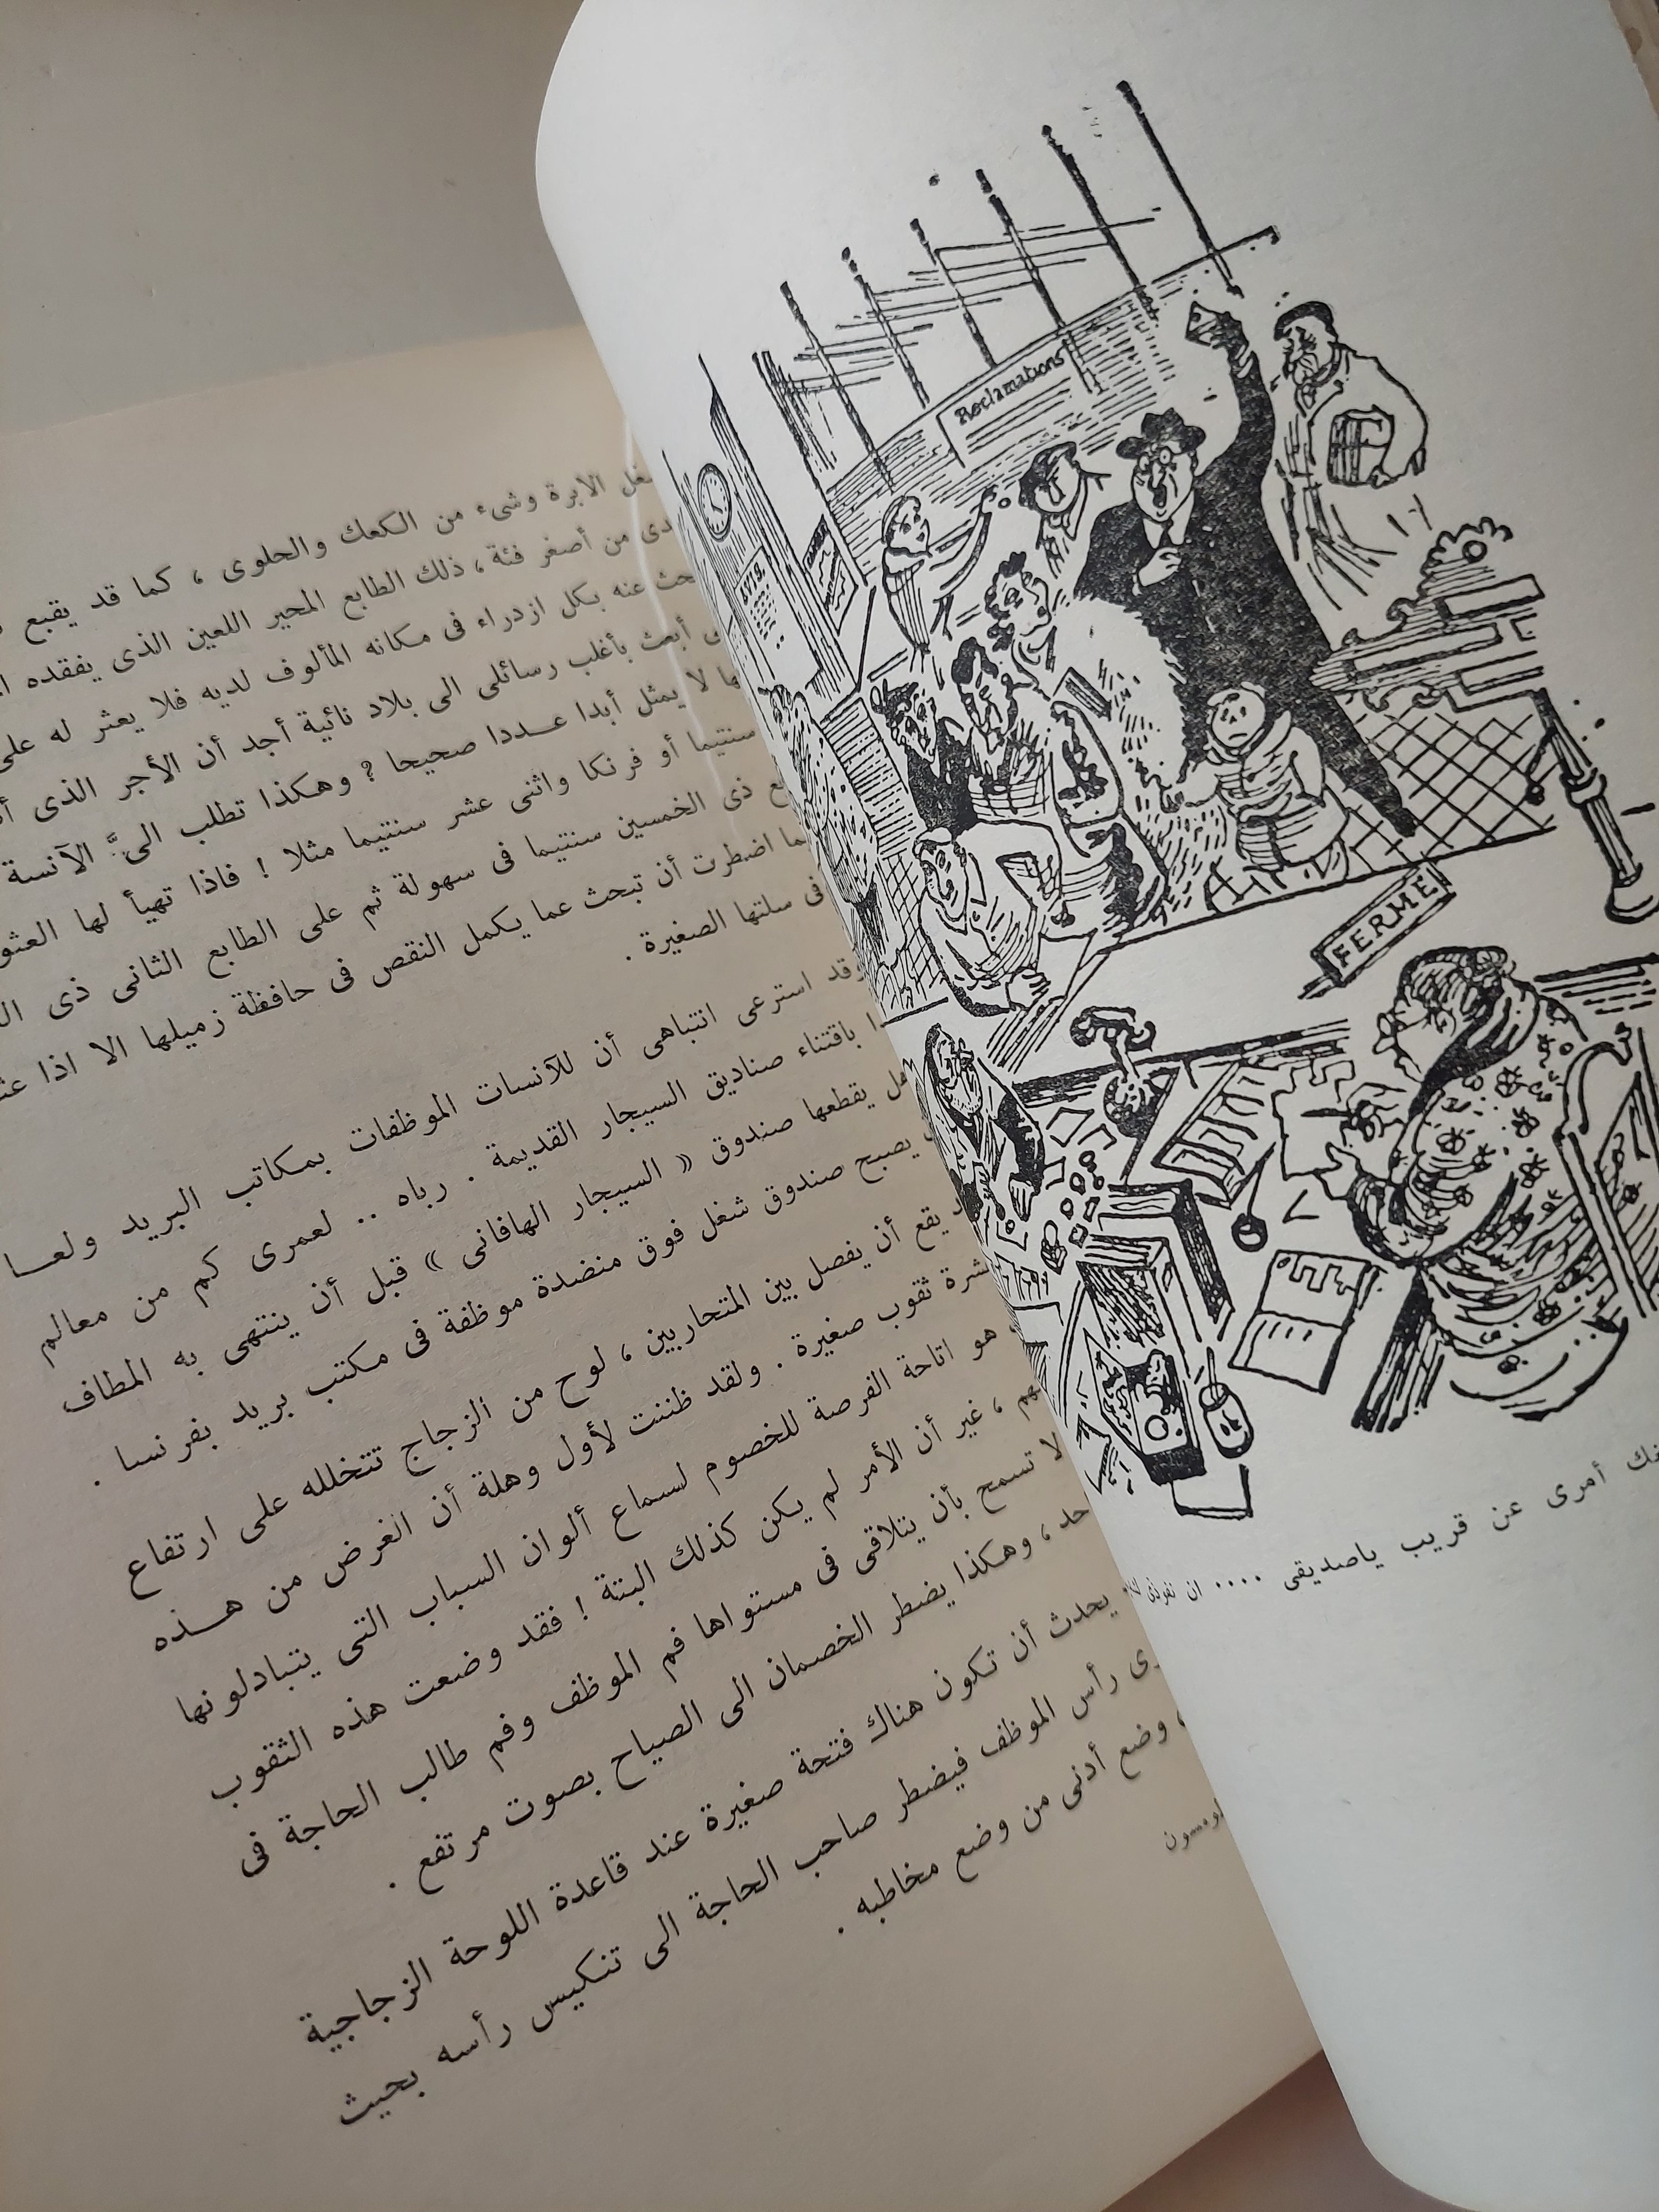 Reclamations
FERMÉ
أمرى عن قريب ياصديقى ....
الابرة وشىء من الكعك والحلوى ، كما قد يقبع
من أصغر فئة ، ذلك الطابع المحير اللعين الذى يفقده
عنه بكل ازدراء فى مكانه المألوف لديه فلا يعثر له على
أبعث بأغلب رسائلى الى بلاد نائية أجد أن الأجر الذى
لا يمثل أبدا عددا صحيحا ? وهكذا تطلب الىَّ الآنسة
سنتيما أو فرنكا واثنى عشر سنتيما مثلا ! فاذا تهيأ لها
ذى الخمسين سنتيما فى سهولة ثم على الطابع الثانى ذى
اضطرت أن تبحث عما يكمل النقص فى حافظة زميلها الا اذا
فى سلتها الصغيرة .
وقد استرعى انتباهى أن للآنسات الموظفات بمكاتب البريد ولعا
باقتناء صناديق السيجار القديمة . رباه .. لعمرى كم من معالم
يقطعها صندوق « السيجار الهافانى » قبل أن ينتهى به المطاف
يصبح صندوق شغل فوق منضدة موظفة فى مكتب بريد بفرنسا .
يقع أن يفصل بين المتحاربين ، لوح من الزجاج تتخلله على ارتفاع
ثقوب صغيرة . ولقد ظننت لأول وهلة أن الغرض من هذه
هو اتاحة الفرصة للخصوم لسماع ألوان السباب التى يتبادلونها
، غير أن الأمر لم يكن كذلك البتة ! فقد وضعت هذه الثقوب
لا تسمح بأن يتلاقى فى مستواها فم الموظف وفم طالب الحاجة فى
، وهكذا يضطر الخصمان الى الصياح بصوت مرتفع .
يحدث أن تكون هناك فتحة صغيرة عند قاعدة اللوحة الزجاجية
رأس الموظف فيضطر صاحب الحاجة الى تنكيس رأسه بحيث
، وضع أدنى من وضع مخاطبه .